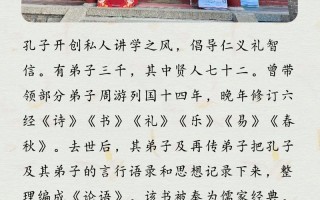 孔子开创私人讲学之风，倡导仁义礼智
信。有弟子三千，其中贤人七十二。曾带
领部分弟子周游列国十四年，晚年修订六
经《诗》《书》《礼》《乐》《易》《春
秋》。去世后，其弟子及再传弟子把孔子
及其弟子的言行语录和思想记录下来，整
理编成《论语》。该书被奉为儒家经典，